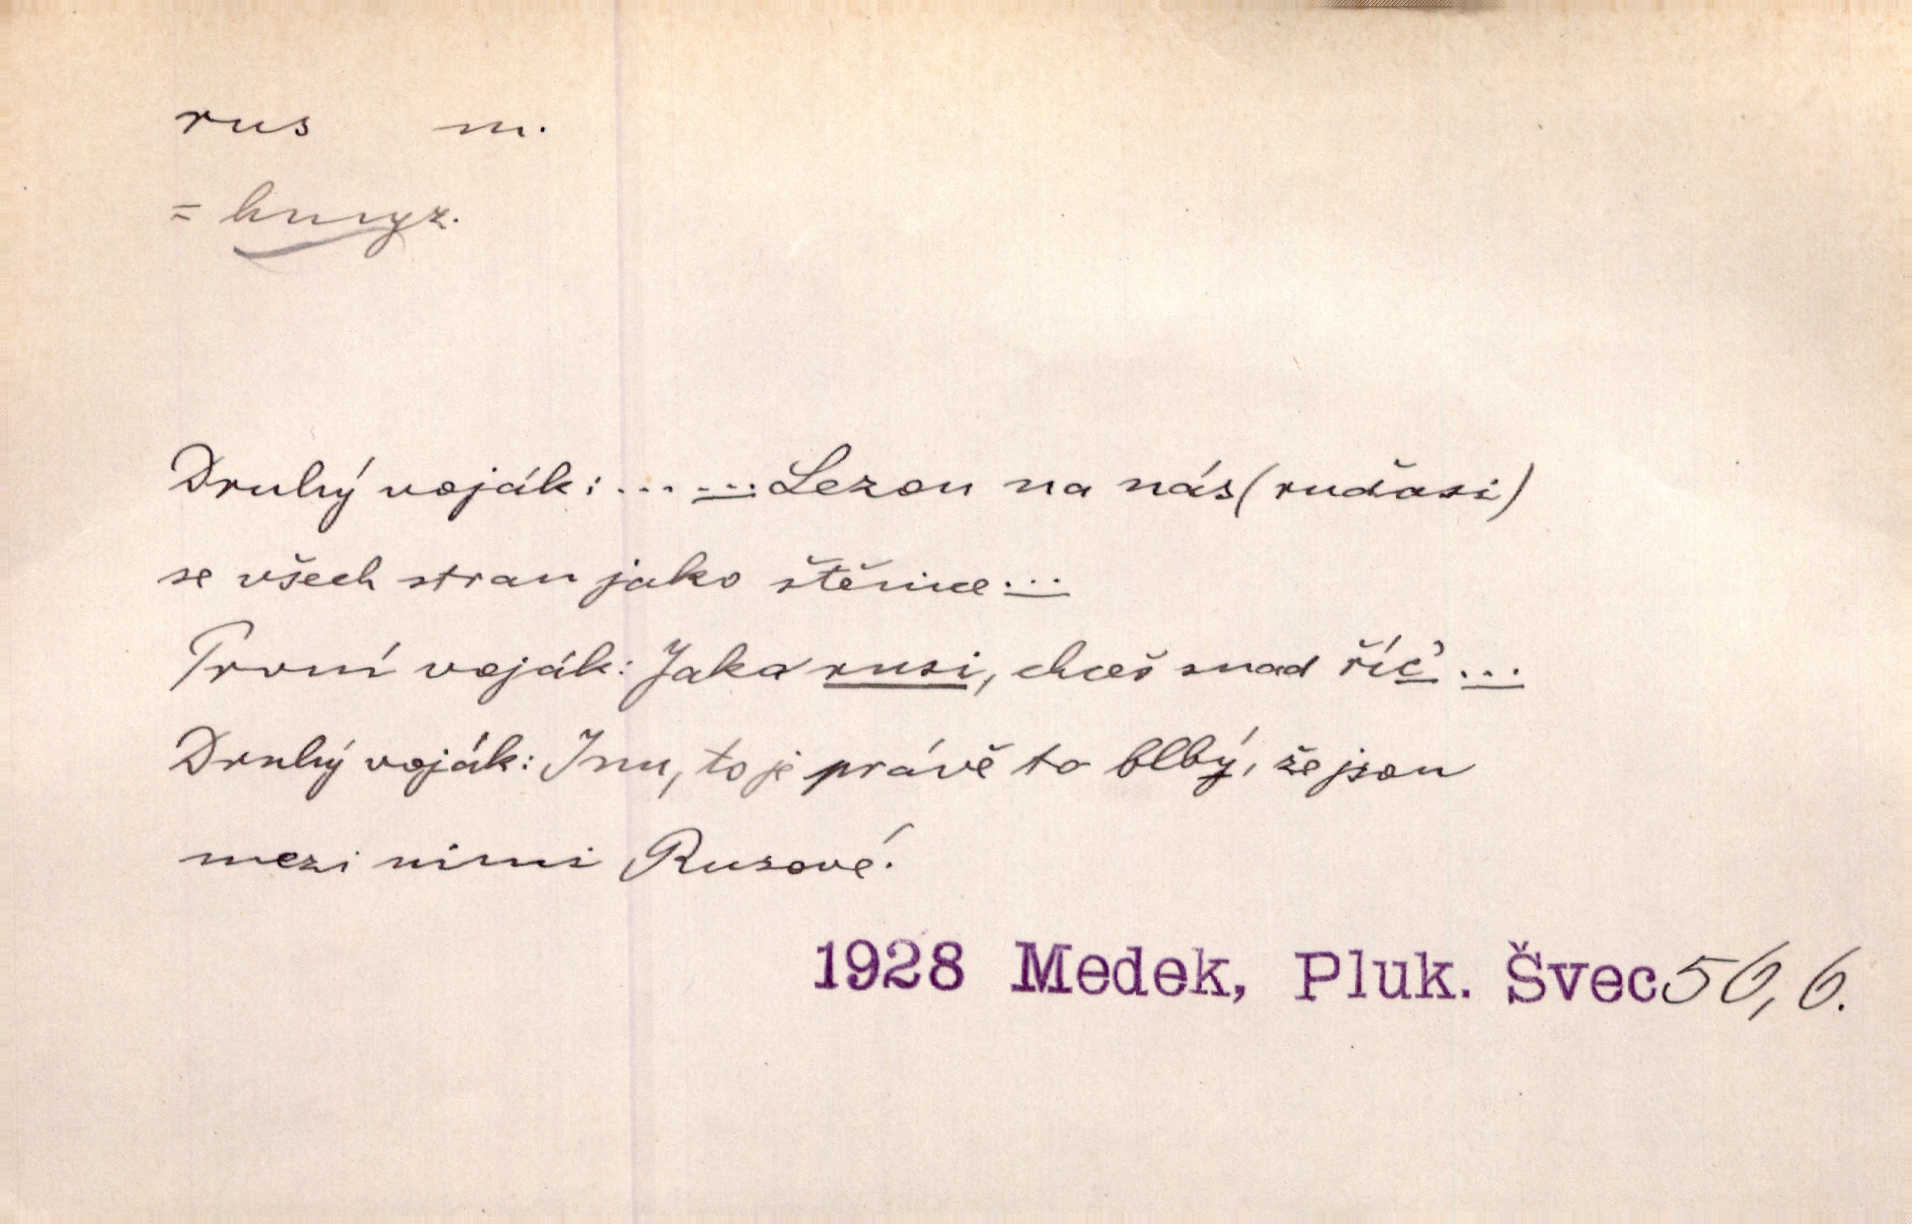 rus m.
= hmyz.
Druhý voják: ... ... Lezou na nás (rudoši)
se všech stran jako štěnice ...
První voják: Jako rusi, chceš snad říc' ...
Druhý voják: Inu, to je právě to blbý, že jsou
mezi nimi Rusové.
1928 Medek, Pluk. Švec 56, 6.